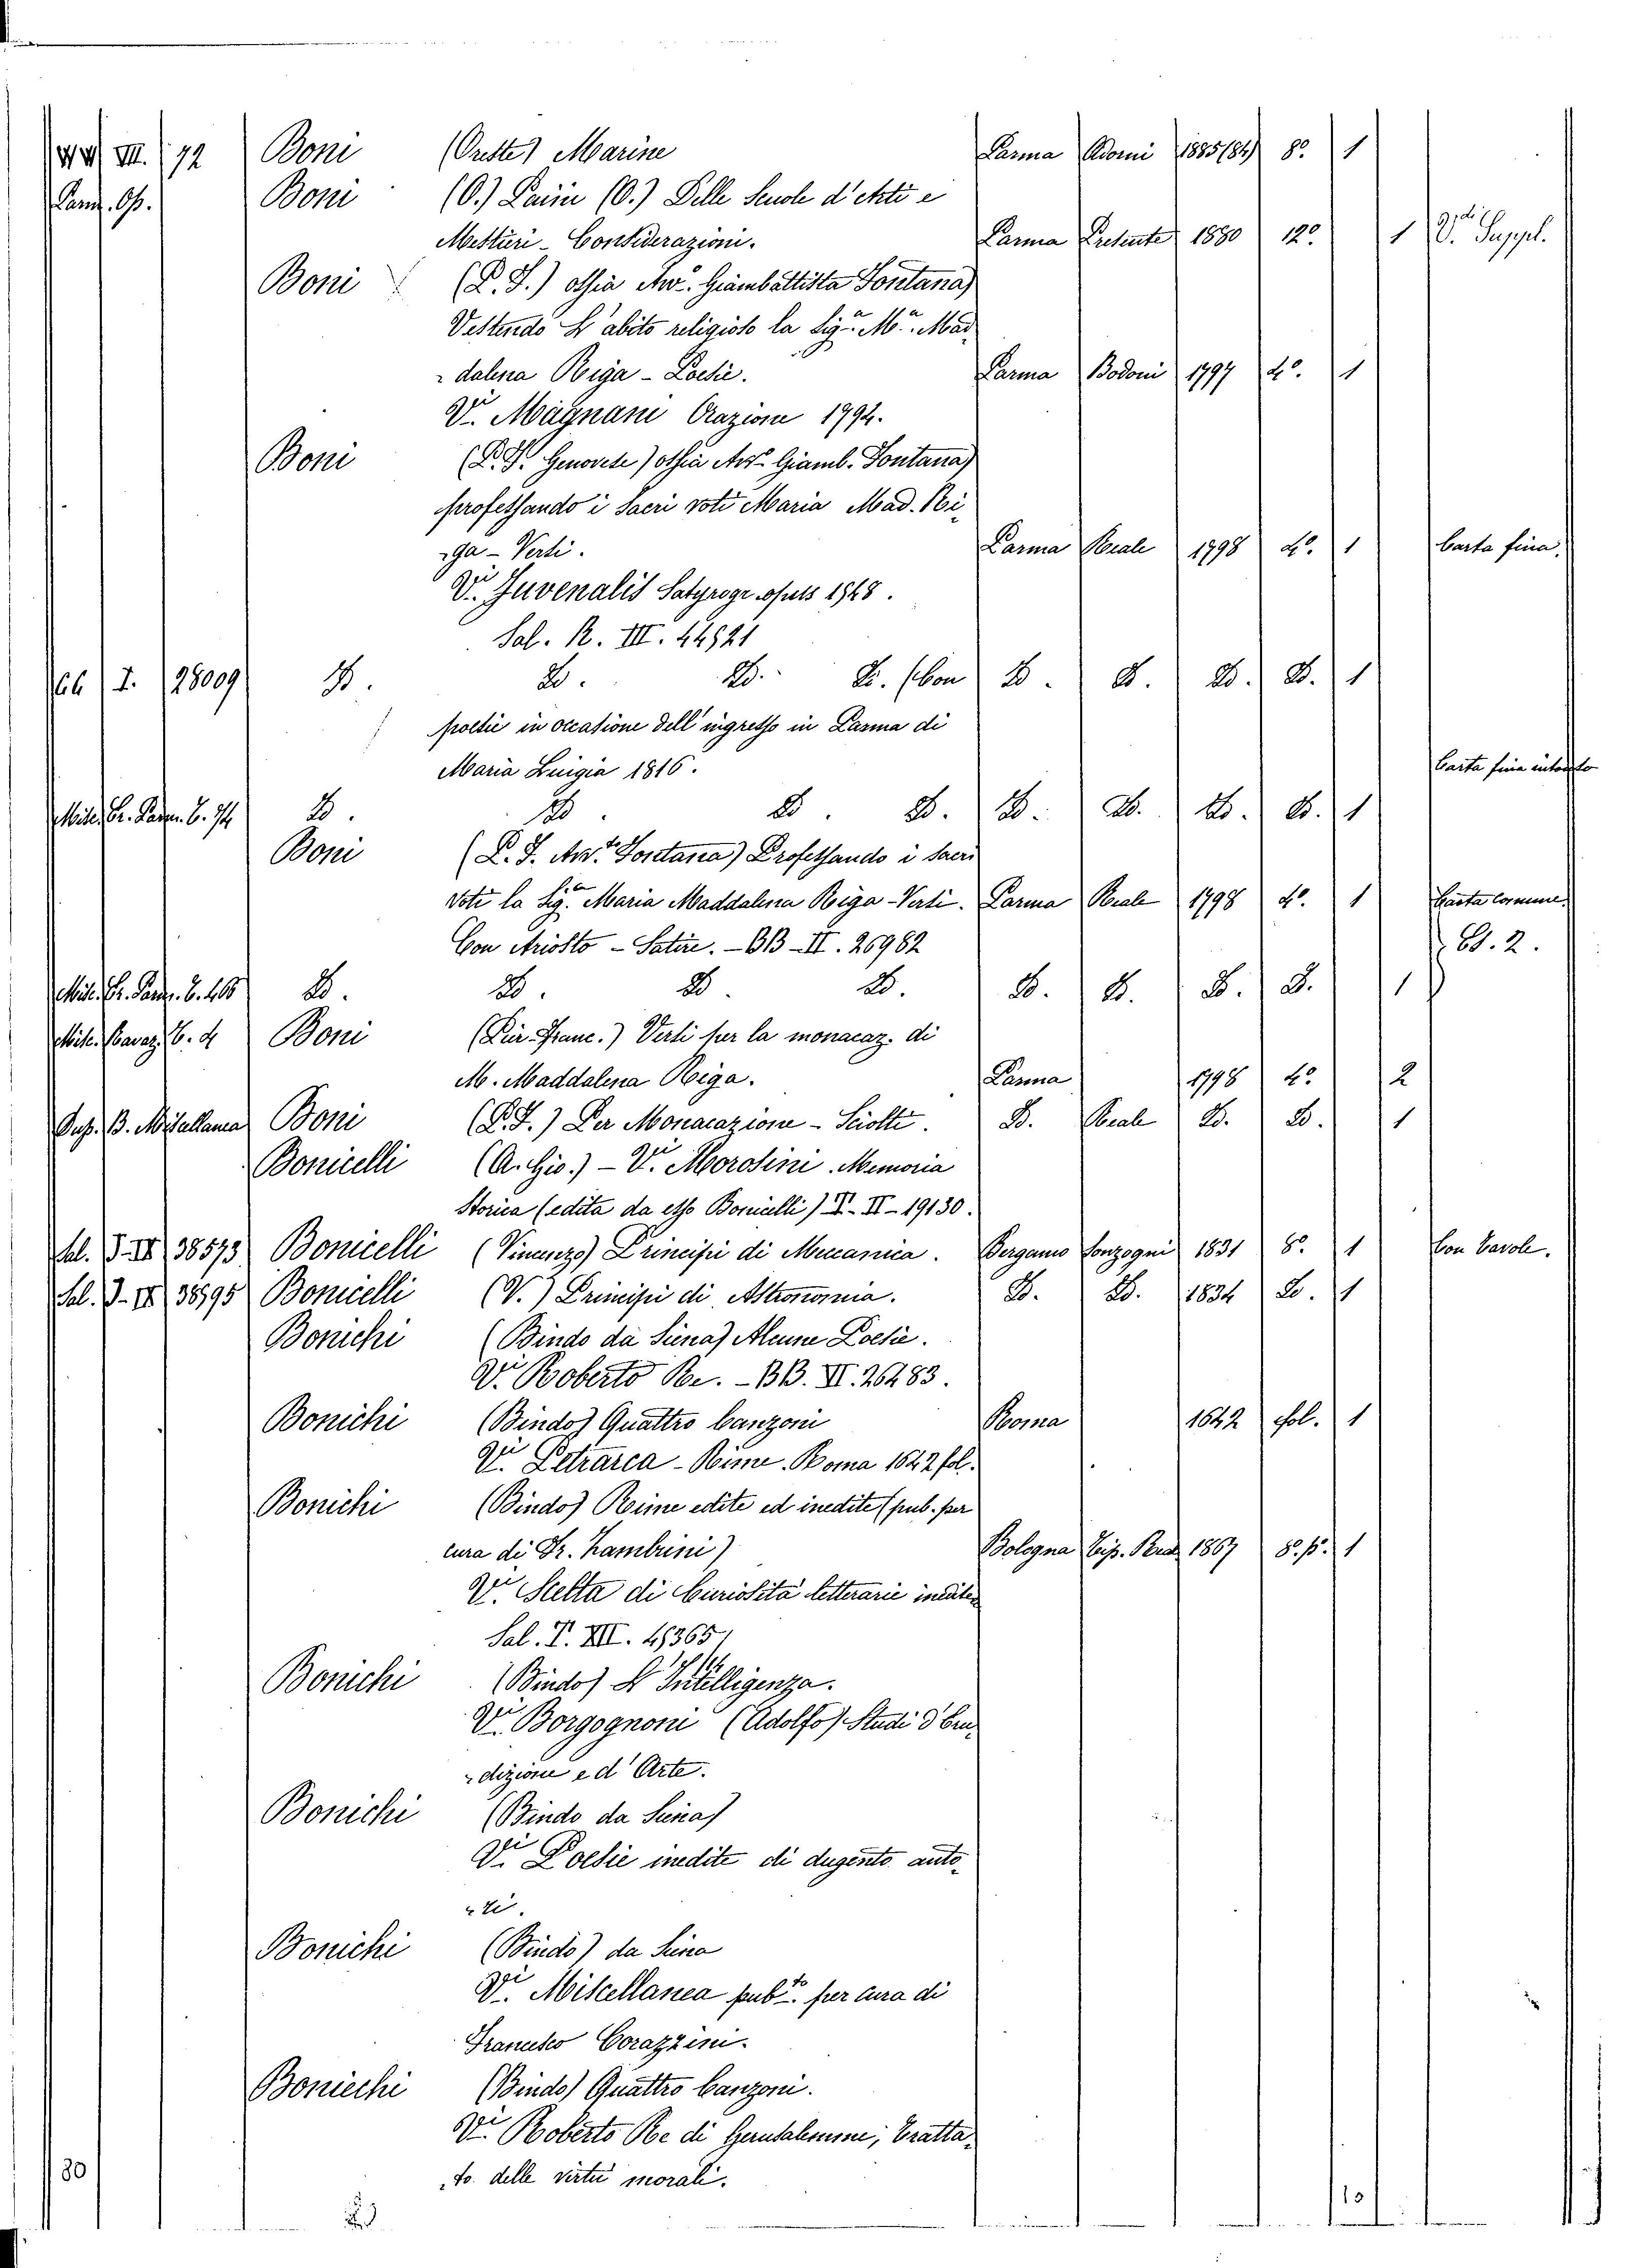 VIII. 72 Boni (Oreste) Marine Parma Adorni 1885(84) 8º 1
Parm. Op. Boni (O.) Paini (O.) Delle Scuole d'Arti e
Mestieri - Considerazioni. Parma 1880 12º 1 Vdi Suppl.
Boni (P. F.) ossia Avv.º Giambattista Fontana)
Vestendo L'abito religioso la Sigª Mª Mad-
-dalena Riga - Poesie. Parma Bodoni 1794 4º. 1
Vi Magnani Orazione 1794.
Boni (P. F. Genovese) ossia Avv.º Giamb. Fontana)
professando i sacri voti Maria Mad. Ri-
-ga - Versi. Parma Reale 1798 4º. 1 Carta fina.
Vi Juvenalis
Sal. R. III. 44821
66 I. 28009 D. D. D. D. (con D. D. D. D. 1
poesie in occasione dell'ingresso in Parma di
Maria Luigia 1816. Carta fina
Misc. Er. Parm. C. 74 D. D. D. D. D. D. D. D. 1
Boni (P. F. Avv.to Fontana) Professando i sacri
voti la Sig.ª Maria Maddalena Riga - Versi. Parma Reale 1798 4º. 1 Carta comune.
Con Ariosto - Satire. - BB - II. 26982 C. 2.
Misc. Er. Parm. C. D. D. D. D. D. D. D. D. 1
Misc. C. 4 Boni (Pier-Franc.) Versi per la monacaz. di
M. Maddalena Riga. Parma 1798 4º 2
Sup. B. Miscellanea Boni (P. F.) Per Monacazione - Sciolti. D. Reale D. D. 1
Bonicelli (A. Gio.) - Vi Morosini. Memoria
Storica (edita da esso Bonicelli) T. II - 19130.
Sal. J - II 38573 Bonicelli (Vincenzo) Principi di Meccanica. Bergamo Sonzogni 1831 8º 1 Con tavole.
Sal. J - II 38595 Bonicelli (V.) Principi di Astronomia. D. D. 1834 D. 1
Bonichi (Bindo da Siena) Alcune Poesie.
Vi Roberto Re. - BB. VI. 26283.
Bonichi (Bindo) Quattro Canzoni Roma 1642 fol. 1
Vi Petrarca - Rime. Roma 1642 fol.
Bonichi (Bindo) Rime edite ed inedite (pub. per
cura di Fr. Zambrini) Bologna Tip. 1867 8º. p. 1
Vi Scelta di Curiosità letterarie inedite
Sal. T. VII. 48365
Bonichi (Bindo) L'Intelligenza.
Vi Borgognoni (Adolfo) Studi d'Eru-
-dizione e d'Arte.
Bonichi (Bindo da Siena)
Vi Poesie inedite di dugento auto-
-ri.
Bonichi (Bindo) da Siena
Vi Miscellanea pub.te per cura di
Francesco Corazzini.
Boniechi (Bindo) Quattro Canzoni.
Vi Roberto Re di Gerusalemme, Tratta-
-to delle virtù morali.
30 10